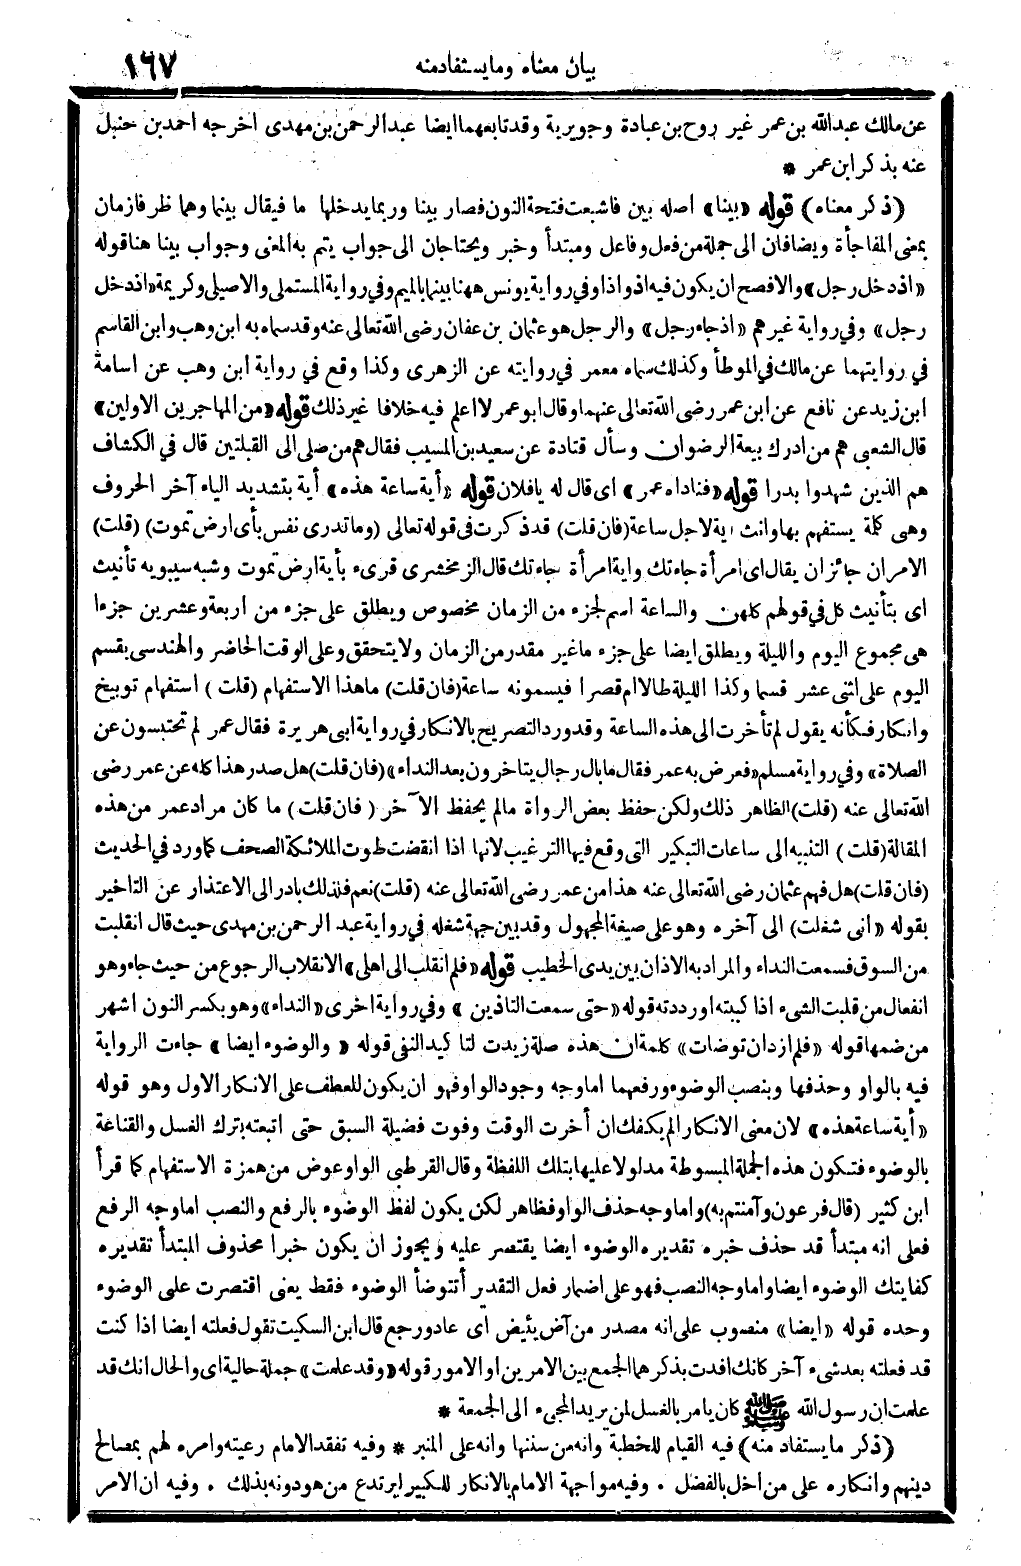 بيان معناه ومايستفادمنه ١٦٧
عن مالك عبدالله بن عمر غير روح بن عبادة وجويرية وقد تابعهما ايضا عبدالرحمن بن مهدى اخرجه احمد بن حنبل
عنه بذكر ابن عمر *
(ذكر معناه) قوله «بينا» اصله بين فاشبعت فتحة النون فصار بينا وربما يدخلها ما فيقال بينما وهما ظرفا زمان
بمعنى المفاجأة ويضافان الى جملة من فعل وفاعل ومبتدأ وخبر ويحتاجان الى جواب يتم به المعنى وجواب بينا هنا قوله
«اذ دخل رجل» والافصح ان يكون فيه اذ واذا وفي رواية يونس ههنا بينما بالميم وفي رواية المستملى والاصيلى وكريمة «اذ دخل
رجل» وفي رواية غيرهم «اذ جاء رجل» والرجل هو عثمان بن عفان رضى الله تعالى عنه وقد سماه به ابن وهب وابن القاسم
في روايتهما عن مالك في الموطأ وكذلك سماه معمر في روايته عن الزهرى وكذا وقع في رواية ابن وهب عن اسامة
ابن زيد عن نافع عن ابن عمر رضى الله تعالى عنهما وقال ابو عمر لا اعلم فيه خلافا غير ذلك قوله «من المهاجرين الاولين»
قال الشعبى هم من ادرك بيعة الرضوان وسأل قتادة عن سعيد بن المسيب فقال هم من صلى الى القبلتين قال في الكشاف
هم الذين شهدوا بدرا قوله «فناداه عمر» اى قال له يافلان قوله «أية ساعة هذه» أية بتشديد الياء آخر الحروف
وهى كلمة يستفهم بها وانث اية لاجل ساعة (فان قلت) قد ذكرت في قوله تعالى (وما تدرى نفس بأى ارض تموت) (قلت)
الامران جائزان يقال اى امرأة جاءتك واية امرأة جاءتك قال الزمخشرى قرىء بأية ارض تموت وشبه سيبويه تأنيث
اى بتأنيث كل في قولهم كلهن والساعة اسم لجزء من الزمان مخصوص ويطلق على جزء من اربعة وعشرين جزءا
هى مجموع اليوم والليلة ويطلق ايضا على جزء ما غير مقدر من الزمان ولا يتحقق وعلى الوقت الحاضر والهندسى يقسم
اليوم على اثنى عشر قسما وكذا الليلة طالا ام قصرا فيسمونه ساعة (فان قلت) ما هذا الاستفهام (قلت) استفهام توبيخ
وانكار فكأنه يقول لم تأخرت الى هذه الساعة وقد ورد التصريح بالانكار في رواية ابى هريرة فقال عمر لم تحتبسون عن
الصلاة» وفي رواية مسلم «فعرض به عمر فقال ما بال رجال يتاخرون بعد النداء» (فان قلت) هل صدر هذا كله عن عمر رضى
الله تعالى عنه (قلت) الظاهر ذلك ولكن حفظ بعض الرواة مالم يحفظ الآخر (فان قلت) ما كان مراد عمر من هذه
المقالة (قلت) التنبيه الى ساعات التبكير التى وقع فيها الترغيب لانها اذا انقضت طوت الملائكة الصحف كما ورد في الحديث
(فان قلت) هل فهم عثمان رضى الله تعالى عنه هذا من عمر رضى الله تعالى عنه (قلت) نعم فلذلك بادر الى الاعتذار عن التاخير
بقوله «انى شغلت) الى آخره وهو على صيغة المجهول وقد بين جهة شغله في رواية عبد الرحمن بن مهدى حيث قال انقلبت
من السوق فسمعت النداء والمراد به الاذان بين يدى الخطيب قوله «فلم انقلب الى اهلى» الانقلاب الرجوع من حيث جاء وهو
انفعال من قلبت الشىء اذا كببته او رددته قوله «حتى سمعت التاذين» وفي رواية اخرى «النداء» وهو بكسر النون اشهر
من ضمها قوله «فلم ازد ان توضات» كلمة ان هذه صلة زيدت لتاكيد النفى قوله «والوضوء ايضا» جاءت الرواية
فيه بالواو وحذفها وبنصب الوضوء ورفعهما اما وجه وجود الواو فهو ان يكون للعطف على الانكار الاول وهو قوله
«أية ساعة هذه» لان معنى الانكار الم يكفك ان أخرت الوقت وفوت فضيلة السبق حتى اتبعته بترك الغسل والقناعة
بالوضوء فتكون هذه الجملة المبسوطة مدلولا عليها بتلك اللفظة وقال القرطبى الواو عوض من همزة الاستفهام كما قرأ
ابن كثير (قال فرعون وآمنتم به) واما وجه حذف الواو فظاهر لكن يكون لفظ الوضوء بالرفع والنصب اما وجه الرفع
فعلى انه مبتدأ قد حذف خبره تقديره الوضوء ايضا يقتصر عليه ويجوز ان يكون خبرا محذوف المبتدأ تقديره
كفايتك الوضوء ايضا واما وجه النصب فهو على اضمار فعل التقدير أتتوضأ الوضوء فقط يعنى اقتصرت على الوضوء
وحده قوله «ايضا» منصوب على انه مصدر من آض يئيض اى عاد ورجع قال ابن السكيت تقول فعلته ايضا اذا كنت
قد فعلته بعد شىء آخر كانك افدت بذكرهما الجمع بين الامرين او الامور قوله «وقد علمت» جملة حالية اى والحال انك قد
علمت ان رسول الله ﷺ كان يامر بالغسل لمن يريد المجىء الى الجمعة *
(ذكر ما يستفاد منه) فيه القيام للخطبة وانه من سننها وانه على المنبر * وفيه تفقد الامام رعيته وامره لهم بمصالح
دينهم وانكاره على من اخل بالفضل . وفيه مواجهة الامام بالانكار للكبير ليرتدع من هو دونه بذلك . وفيه ان الامر